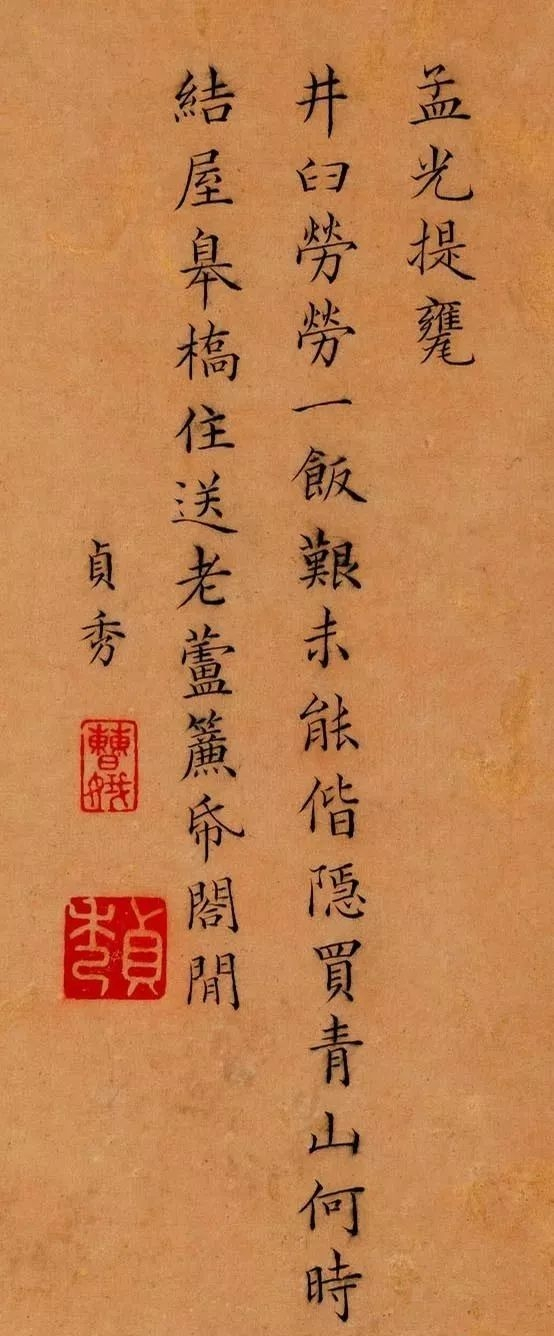 孟光提甕
井臼勞勞一飯艱未能偕隱買青山何時
結屋皋橋住送老蘆簾帋閤間
貞秀
曹娥
貞秀